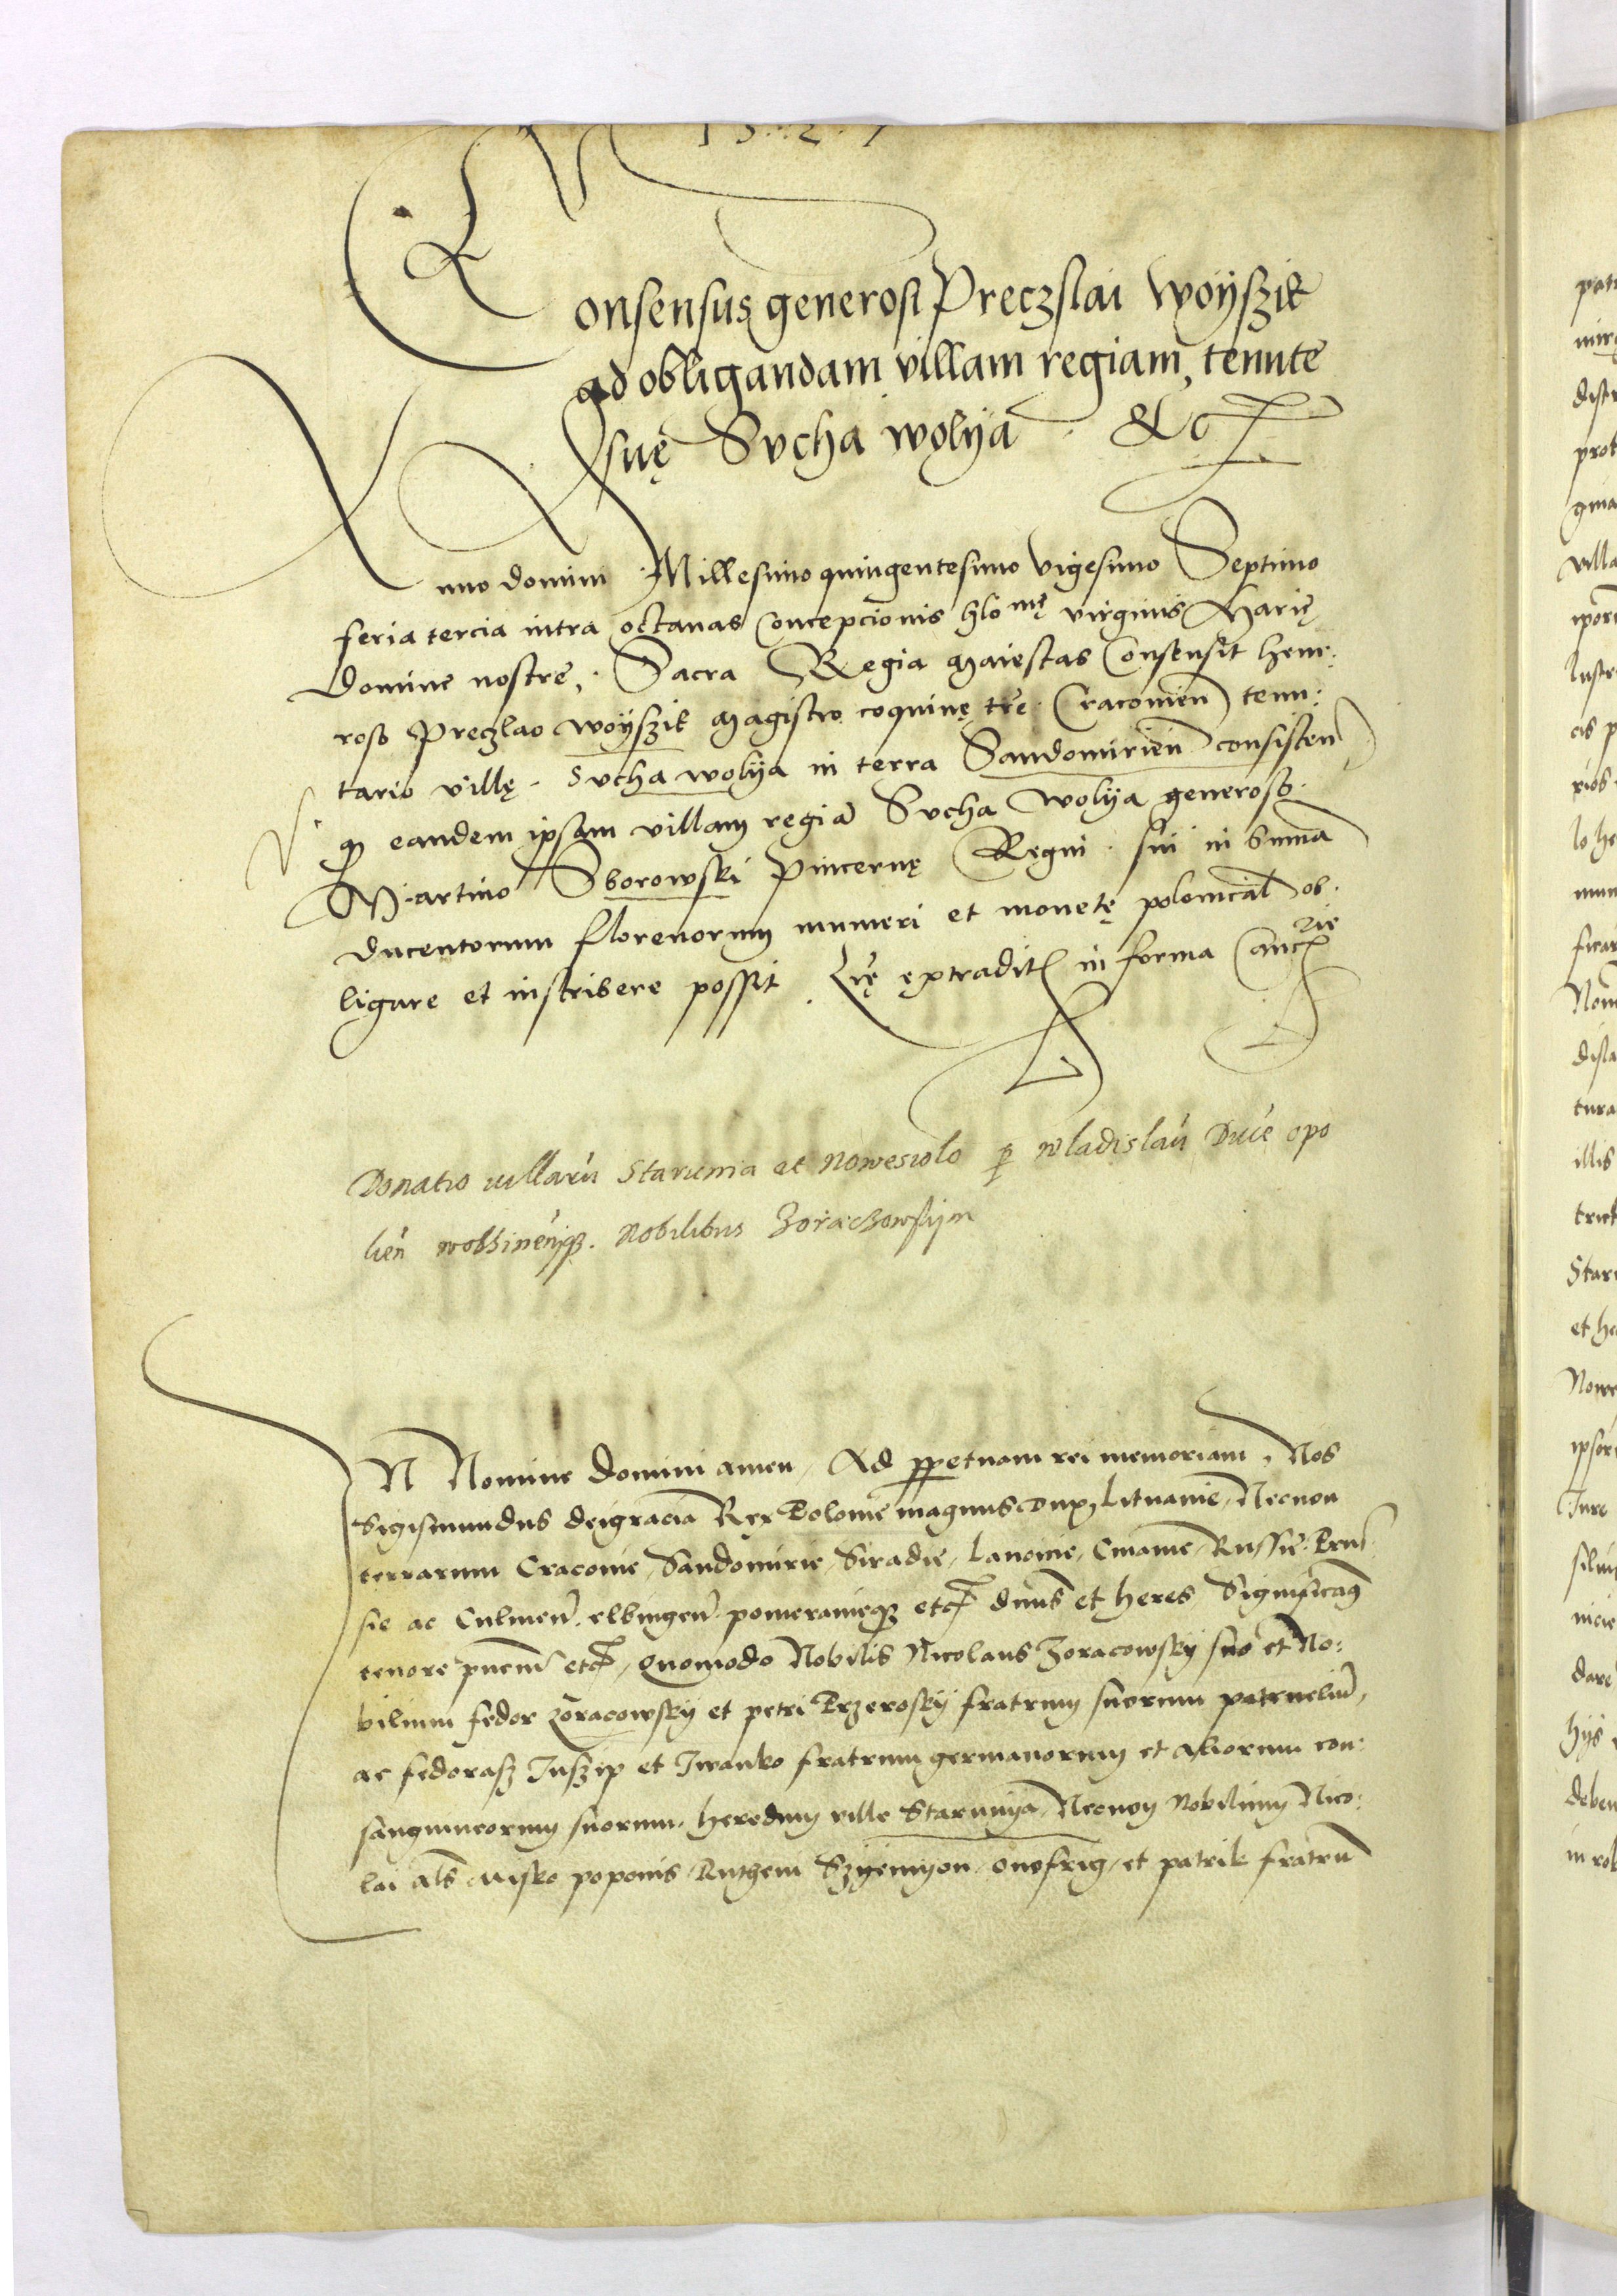 15 · 2 · 7
Consensus generosi Preczslai Woÿszik
ad obligandam villam regiam, tenute
suę Sucha wolÿa · &c
Anno domini Millesimo quingentesimo vigesimo Septimo
feria tercia intra octauas Concepcionis glo mę virginis Marię
Domine nostre, · Sacra Regia Maiestas Consensit gene:
roso Preczlao woÿszik Magistro coquinę tre Cracouien tenu:
tario villę · Sucha wolÿa in terra Sandomirien consisten
qʒ eandem ipsam villam regiā Sucha wolÿa generoso
Martino Sborowski Pincernę Regni · sui in Summa
ducentorum florenorum numeri et monetę polonicāl ob:
ligare et inscribere possit Lrę extradit in forma Canc rie
Donatio villarū Starunia et Nowesiolo p wladislaū Duce opo
lien Nobilibus Zoraczowskÿm
IN Nomine Domini amen / Ad ppetuam rei memoriam, Nos
Sigismundus deigracia Rex Polonie magnus Dux Lituanie / Necnon
terrarum Cracouie / Sandomirie / Siradie / Lancicie / Cuiauie / Russie / Prus
sie ac Culmen elbingen pomeranieqʒ etc dnus et heres Significam9
tenore pntm etc, Quomodo Nobilis Nicolaus Zoracowskÿ suo et No:
bilium fedor Zoracowskÿ et petri Przeroskÿ fratrum suorum patrueliū,
ac fedorasz Juszip et Iwanko fratrum germanorum et aliorum con:
sanguineorum suorum heredum ville Starunÿa, Necnon Nobilium Nico:
lai als Misko poponis / Rutheni Szÿemÿon / onofrig / et patrik fratrū